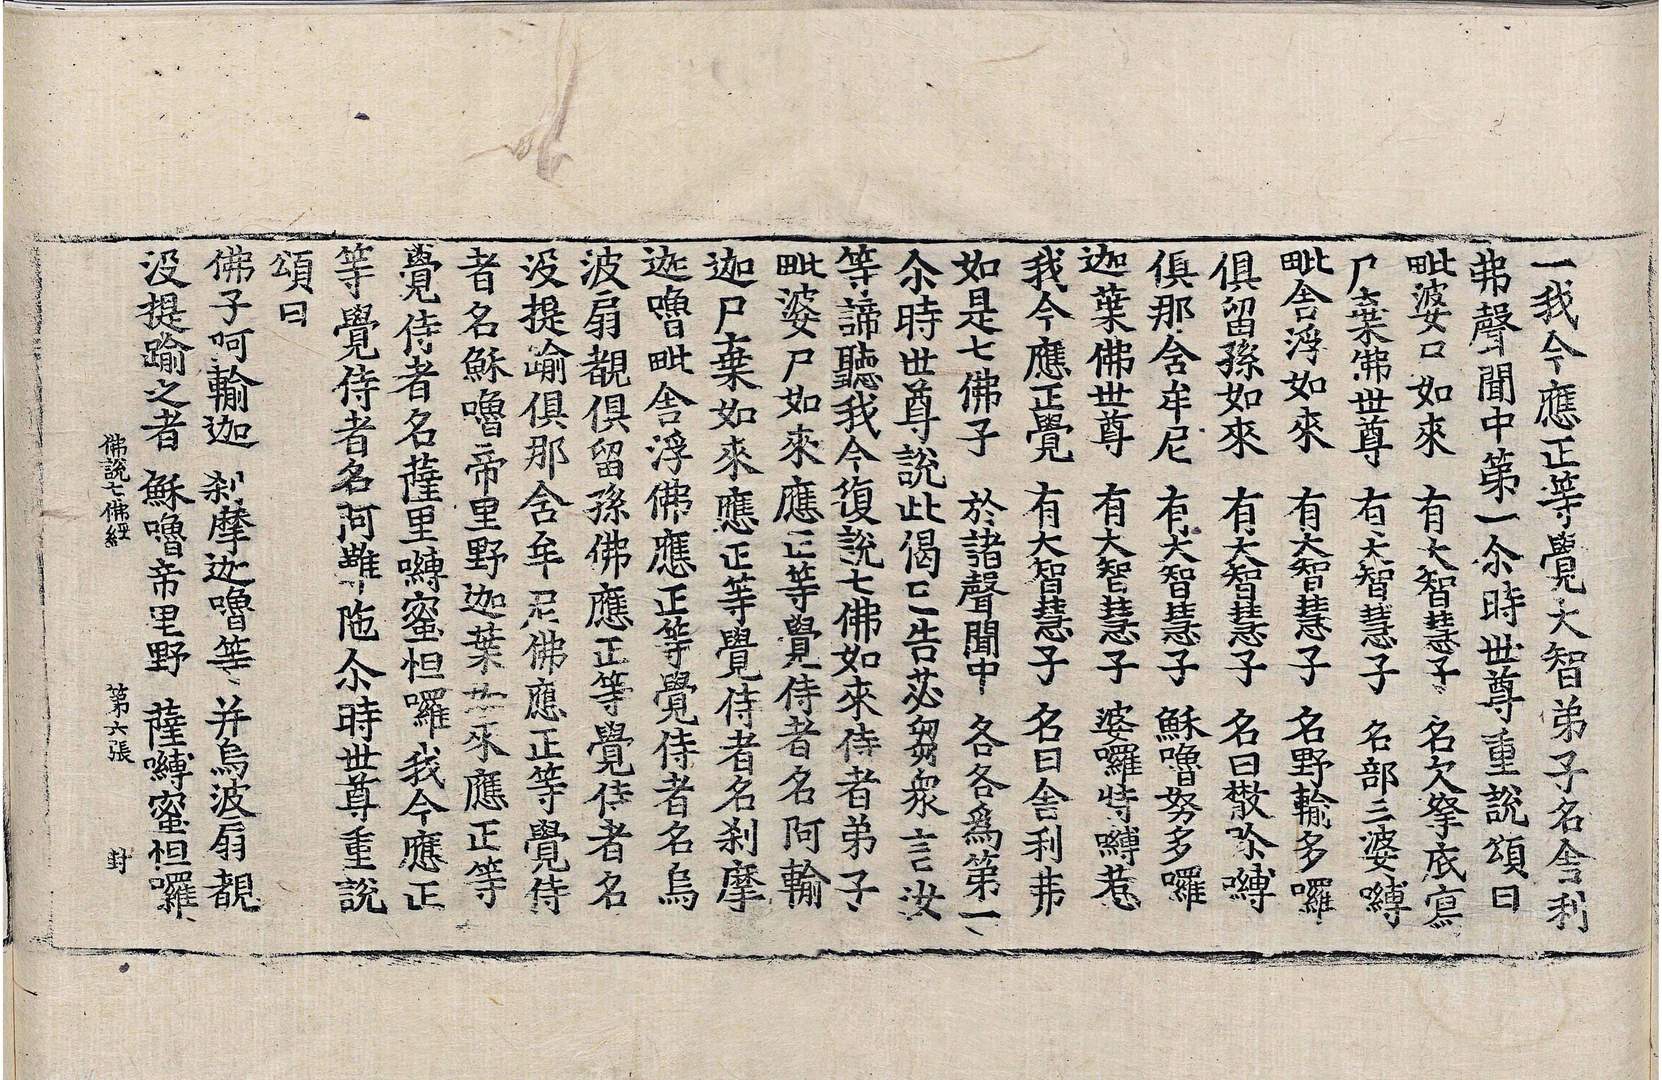 一我今應正等覺大智弟子名舍利
弗聲聞中第一尒時世尊重說頌曰
毗婆尸如來　有大智慧子　名欠拏底寫
尸棄佛世尊　有大智慧子　名部三婆嚩
毗舍浮如來　有大智慧子　名野輸多囉
俱留孫如來　有大智慧子　名曰散𠇍嚩
俱那含牟尼　有大智慧子　穌嚕努多囉
迦葉佛世尊　有大智慧子　婆囉特嚩惹
我今應正覺　有大智慧子　名曰舍利弗
如是七佛子　於諸聲聞中　各各爲第一
尒時世尊說此偈已告苾芻衆言汝
等諦聽我今復說七佛如來侍者弟子
毗婆尸如來應正等覺侍者名阿輸
迦尸棄如來應正等覺侍者名刹摩
迦嚕毗舍浮佛應正等覺侍者名烏
波扇覩俱留孫佛應正等覺侍者名
沒提踰俱那舍牟尼佛應正等覺侍
者名穌嚕帝里野迦葉如來應正等
覺侍者名薩里嚩蜜怛囉我今應正
等覺侍者名阿難陁尒時世尊重說
頌曰
佛子呵輸迦　刹摩迦嚕等　并烏波扇覩
沒提踰之者　穌嚕帝里野　薩嚩蜜怛囉
佛說七佛經　第六張　封